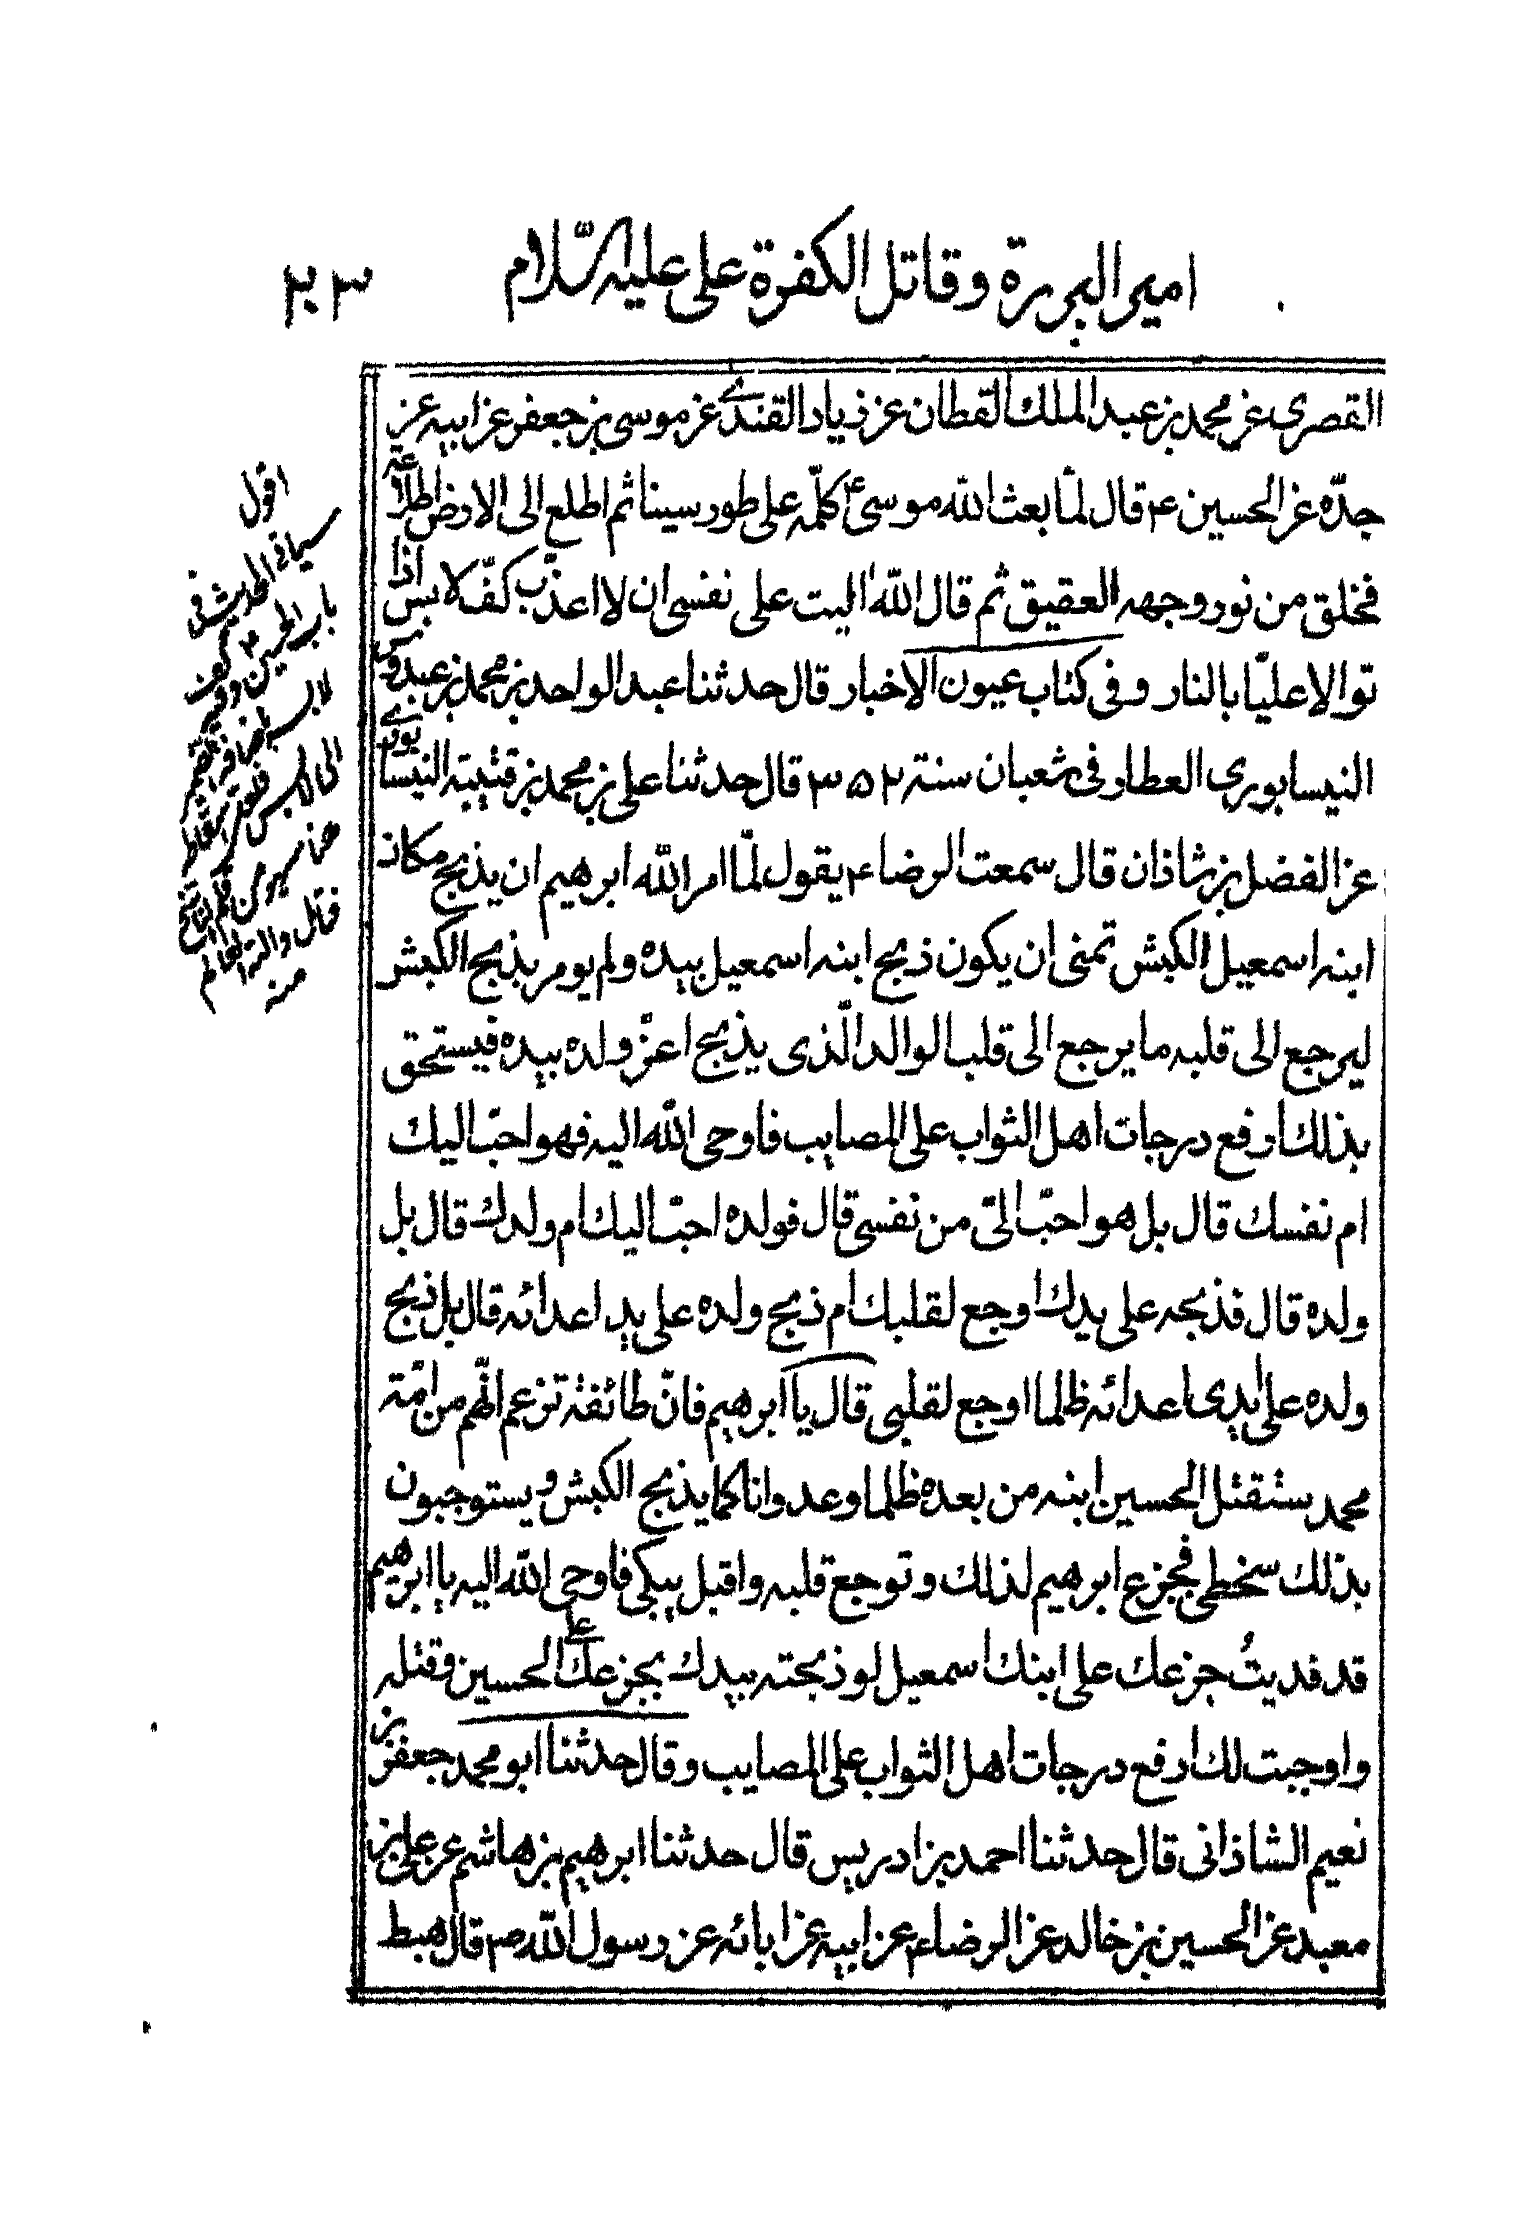 امير البررة وقاتل الكفرة على عليه السّلام ٢٣
القصرى عن محمد بن عبد الملك القطان عن زياد القندى عن موسى بن جعفر عن ابيه عن
جدّه عن الحسين ع قال لمّا بعث الله موسى ع كلّمه على طور سينا ثم اطلع الى الارض اطلاعة
فخلق من نور وجهه العقيق ثم قال الله اليت على نفسى ان لا اعذّب كفّ لابس اذا
توالا عليّا بالنار وفى كتاب عيون الاخبار قال حدثنا عبد الواحد بن محمد بن عبدوس
النيسابورى العطار فى شعبان سنة ٣٥٢ قال حدثنا على بن محمد بن قتيبة النيسابورى
عن الفضل بن شاذان قال سمعت الرضا ع يقول لمّا امر الله ابرهيم ان يذبح مكان
ابنه اسمعيل الكبش تمنى ان يكون ذبح ابنه اسمعيل بيده ولم يومر بذبح الكبش
ليرجع الى قلبه ما يرجع الى قلب الوالد الّذى يذبح اعزّ ولده بيده فيستحق
بذلك ارفع درجات اهل الثواب على المصايب فاوحى الله اليه فهو احبّ اليك
ام نفسك قال بل هو احبّ الىّ من نفسى قال فولده احبّ اليك ام ولدك قال بل
ولده قال فذبحه على يدك اوجع لقلبك ام ذبح ولده على يد اعدائه قال بل ذبح
ولده على ايدى اعدائه ظلما اوجع لقلبى قال يا ابرهيم فانّ طائفة تزعم انّهم من امّة
محمد ستقتل الحسين ابنه من بعده ظلما وعدوانا كما يذبح الكبش ويستوجبون
بذلك سخطى فجزع ابرهيم لذلك وتوجع قلبه واقبل يبكى فاوحى الله اليه يا ابرهيم
قد فديتُ جزعك على ابنك اسمعيل لو ذبحته بيدك بجزعك على الحسين وقتله
واوجبت لك ارفع درجات اهل الثواب على المصايب وقال حدثنا ابو محمد جعفر بن
نعيم الشاذانى قال حدثنا احمد بن ادريس قال حدثنا ابرهيم بن هاشم عن على بن
معبد عن الحسين بن خالد عن الرضا ع عن ابيه عن ابائه عن رسول الله ص قال هبط
اقول
سياتى الحديث فى
باب
منه